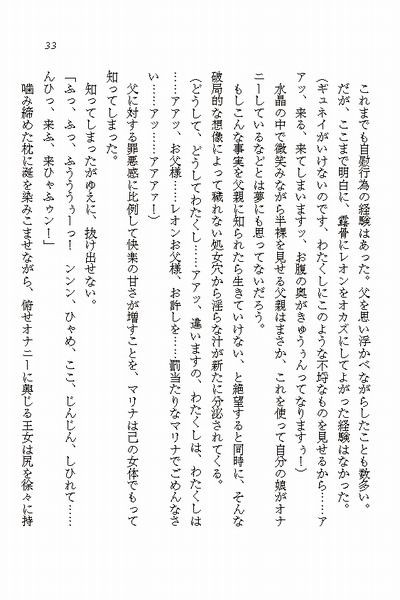 33
これまでも自慰行為の経験はあった。父を思い浮かべながらしたことも数多い。
だが、ここまで明白に、露骨にレオンをオカズにしてよがった経験はなかった。
（ギュネイがいけないのです、わたくしにこのような不埒なものを見せるから……ア
アッ、来る、来てしまいますッ、お腹の奥がきゅうぅんってなりますぅー）
水晶の中で微笑みながら半裸を見せる父親はまさか、これを使って自分の娘がオナ
ニーしているなどとは夢にも思ってないだろう。
もしこんな事実を父親に知られたら生きていけない、と絶望すると同時に、そんな
破局的な想像によって穢れない処女穴から淫らな汁が新たに分泌されてくる。
（どうして、どうしてわたくし……アアッ、違いますの、わたくしは、わたくしは
……アアッ、お父様……レオンお父様、お許しを……罰当たりなマリナでごめんなさ
い……アッ……アアアァー）
父に対する罪悪感に比例して快楽の甘さが増すことを、マリナは己の女体でもって
知ってしまった。
知ってしまったがゆえに、抜け出せない。
「ふっ、ふっ、ふううぅーっ！　ンンン、ひゃめ、ここ、じんじん、しひれて……
んひっ、来ふ、来ひゃふゥン！」
噛み締めた枕に涎を染みこませながら、俯せオナニーに興じる王女は尻を徐々に持